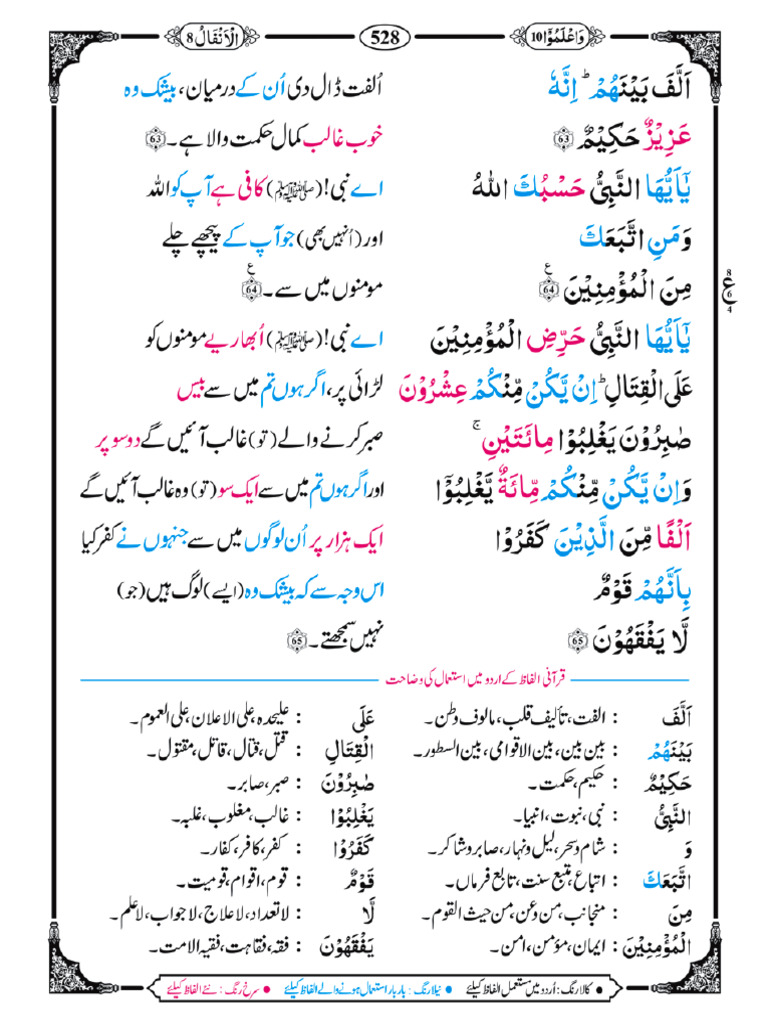 وَاعْلَمُوْٓا 10
528
اَلْاَنْفَالُ 8
اَلَّفَ بَيْنَهُمْ ؕ اِنَّهٗ
اُلفت ڈال دی اُن کے درمیان، بیشک وہ
عَزِيْزٌ حَكِيْمٌ 63
خوب غالب کمال حکمت والا ہے۔ 63
يٰٓاَيُّهَا النَّبِىُّ حَسْبُكَ اللّٰهُ
اے نبی! (ﷺ) کافی ہے آپ کو اللہ
وَمَنِ اتَّبَعَكَ
اور (اُنہیں بھی) جو آپ کے پیچھے چلے
مِنَ الْمُؤْمِنِيْنَ 64 ع
مومنوں میں سے۔ 64 ع
ع 8 6 4
يٰٓاَيُّهَا النَّبِىُّ حَرِّضِ الْمُؤْمِنِيْنَ
اے نبی! (ﷺ) اُبھاریے مومنوں کو
عَلَى الْقِتَالِ ؕ اِنْ يَّكُنْ مِّنْكُمْ عِشْرُوْنَ
لڑائی پر، اگر ہوں تم میں سے بیس
صٰبِرُوْنَ يَغْلِبُوْا مِائَتَيْنِ ۚ
صبر کرنے والے (تو) غالب آئیں گے دو سو پر
وَاِنْ يَّكُنْ مِّنْكُمْ مِّائَةٌ يَّغْلِبُوْٓا
اور اگر ہوں تم میں سے ایک سو (تو) وہ غالب آئیں گے
اَلْفًا مِّنَ الَّذِيْنَ كَفَرُوْا
ایک ہزار پر اُن لوگوں میں سے جنہوں نے کفر کیا
بِاَنَّهُمْ قَوْمٌ
اس وجہ سے کہ بیشک وہ (ایسے) لوگ ہیں (جو)
لَّا يَفْقَهُوْنَ 65
نہیں سمجھتے۔ 65
قرآنی الفاظ کے اردو میں استعمال کی وضاحت
اَلَّفَ : الفت، تالیف قلب، مالوف وطن۔
بَيْنَهُمْ : بین بین، بین الاقوامی، بین السطور۔
حَكِيْمٌ : حکیم، حکمت۔
النَّبِىُّ : نبی، نبوت، انبیا۔
وَ : شام و سحر، لیل و نہار، صابر و شاکر۔
اتَّبَعَكَ : اتباع، متبع سنت، تابع فرماں۔
مِنَ : منجانب، من وعن، من حیث القوم۔
الْمُؤْمِنِيْنَ : ایمان، مؤمن، امن۔
عَلَى : علیحدہ، علی الاعلان، علی العموم۔
الْقِتَالِ : قتل، قتال، قاتل، مقتول۔
صٰبِرُوْنَ : صبر، صابر۔
يَغْلِبُوْا : غالب، مغلوب، غلبہ۔
كَفَرُوْا : کفر، کافر، کفار۔
قَوْمٌ : قوم، اقوام، قومیت۔
لَّا : لا تعداد، لا علاج، لا جواب، لا علم۔
يَفْقَهُوْنَ : فقہ، فقاہت، فقیہ الامت۔
● کالا رنگ: اُردو میں مستعمل الفاظ کیلئے ● نیلا رنگ: بار بار استعمال ہونے والے الفاظ کیلئے ● سرخ رنگ: نئے الفاظ کیلئے